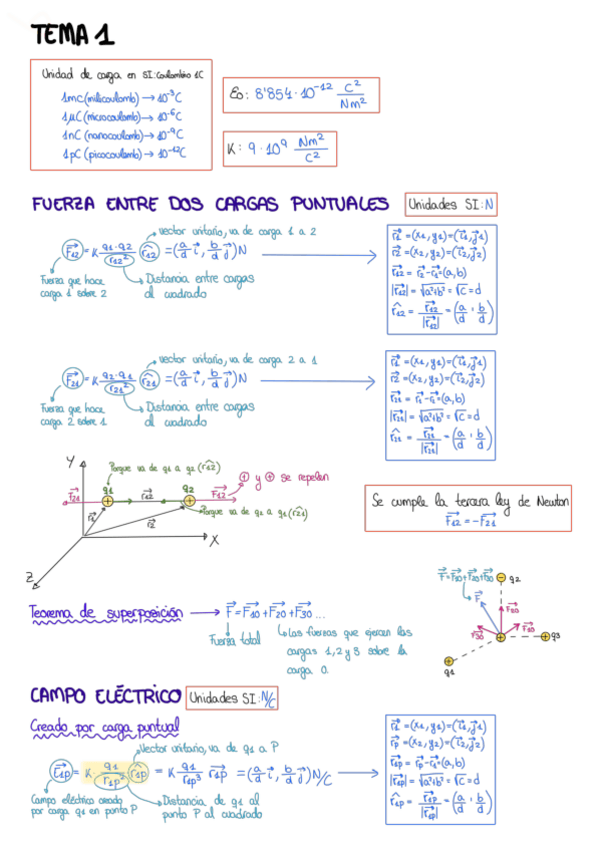 TEMA 1
Unidad de carga en SI: Coulombio 1C
1mC (milicoulomb) → 10⁻³C
1μC (microcoulomb) → 10⁻⁶C
1nC (nanocoulomb) → 10⁻⁹C
1pC (picocoulomb) → 10⁻¹²C
Eo: 8'854·10⁻¹² C²/Nm²
K: 9·10⁹ Nm²/C²
FUERZA ENTRE DOS CARGAS PUNTUALES
Unidades SI: N
vector unitario, va de carga 1 a 2
F⃗12 = K q1·q2/r12² r̂12 = (a/d i⃗, b/d j⃗)N
Fuerza que hace carga 1 sobre 2
Distancia entre cargas al cuadrado
r⃗1 = (x1, y1) = (i⃗1, j⃗1)
r⃗2 = (x2, y2) = (i⃗2, j⃗2)
r⃗12 = r⃗2 - r⃗1 = (a, b)
|r⃗12| = √a²+b² = √c = d
r̂12 = r⃗12/|r⃗12| = (a/d, b/d)
vector unitario, va de carga 2 a 1
F⃗21 = K q2·q1/r21² r̂21 = (a/d i⃗, b/d j⃗)N
Fuerza que hace carga 2 sobre 1
Distancia entre cargas al cuadrado
r⃗1 = (x1, y1) = (i⃗1, j⃗1)
r⃗2 = (x2, y2) = (i⃗2, j⃗2)
r⃗21 = r⃗1 - r⃗2 = (a, b)
|r⃗21| = √a²+b² = √c = d
r̂21 = r⃗21/|r⃗21| = (a/d, b/d)
Y
Porque va de q1 a q2 (r̂12)
⊕ y ⊕ se repelen
F⃗21
q1
r⃗12
q2
F⃗12
Porque va de q2 a q1 (r̂21)
r⃗1
r⃗2
X
Z
Se cumple la tercera ley de Newton
F⃗12 = -F⃗21
Teorema de superposición → F⃗ = F⃗10 + F⃗20 + F⃗30 ...
Fuerza total
Las fuerzas que ejercen las cargas 1, 2 y 3 sobre la carga 0.
F⃗ = F⃗10 + F⃗20 + F⃗30
q2
F⃗
F⃗20
F⃗30
F⃗10
q3
q1
CAMPO ELÉCTRICO
Unidades SI: N/C
Creado por carga puntual
Vector unitario, va de q1 a P
E⃗1p = K q1/r1p² r̂1p = K q1/r1p³ r⃗1p = (a/d i⃗, b/d j⃗)N/C
Campo eléctrico creado por carga q1 en punto P
Distancia de q1 al punto P al cuadrado
r⃗1 = (x1, y1) = (i⃗1, j⃗1)
r⃗p = (x2, y2) = (i⃗2, j⃗2)
r⃗1p = r⃗p - r⃗1 = (a, b)
|r⃗1p| = √a²+b² = √c = d
r̂1p = r⃗1p/|r⃗1p| = (a/d, b/d)